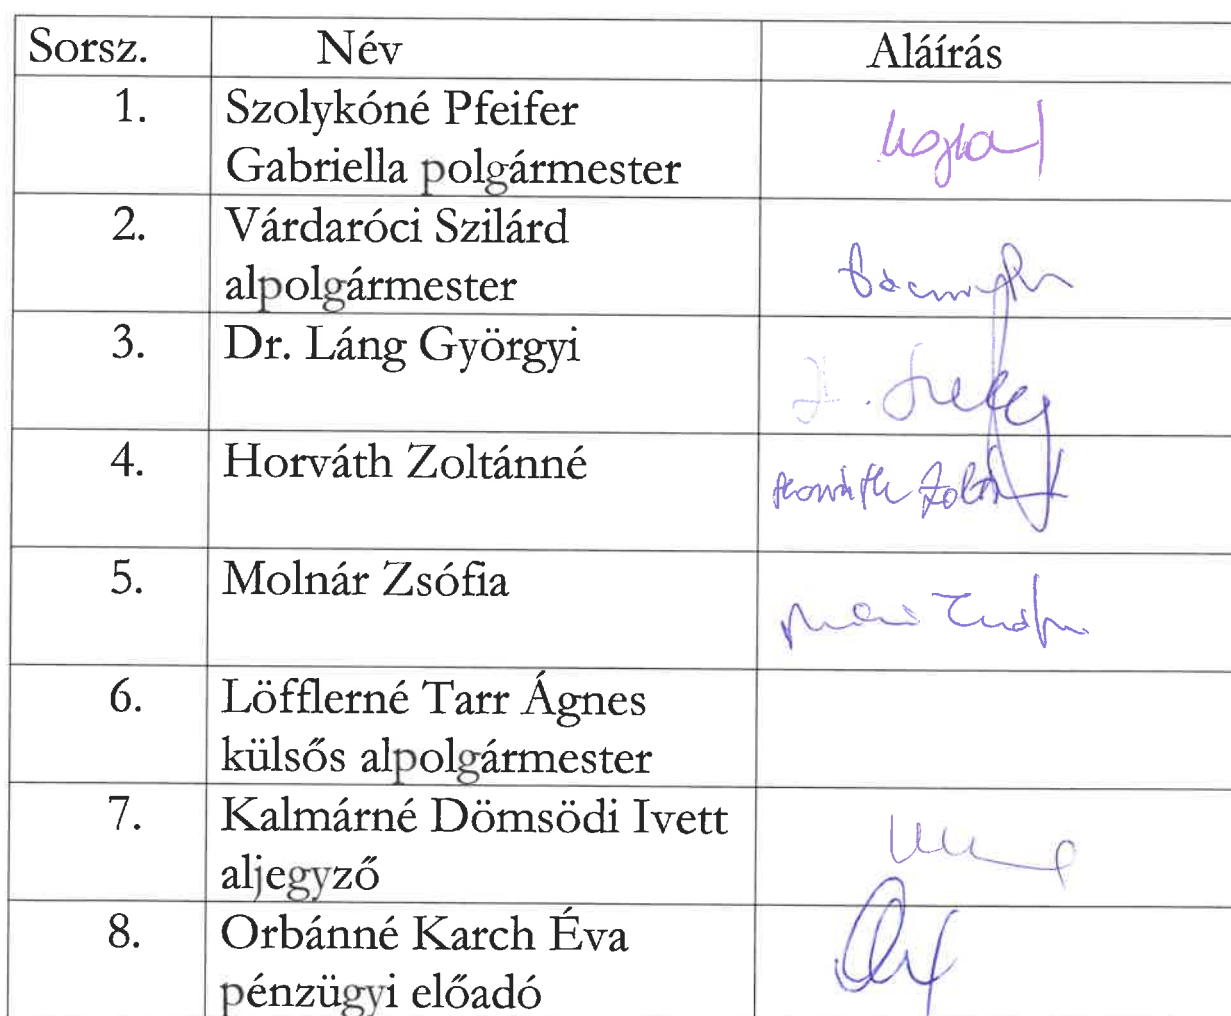 Sorsz. Név Aláírás
1. Szolykóné Pfeifer
Gabriella polgármester
2. Várdaróci Szilárd
alpolgármester
3. Dr. Láng Györgyi
4. Horváth Zoltánné
Horváth Zoltán
5. Molnár Zsófia
6. Löfflerné Tarr Ágnes
külsős alpolgármester
7. Kalmárné Dömsödi Ivett
aljegyző
8. Orbánné Karch Éva
pénzügyi előadó